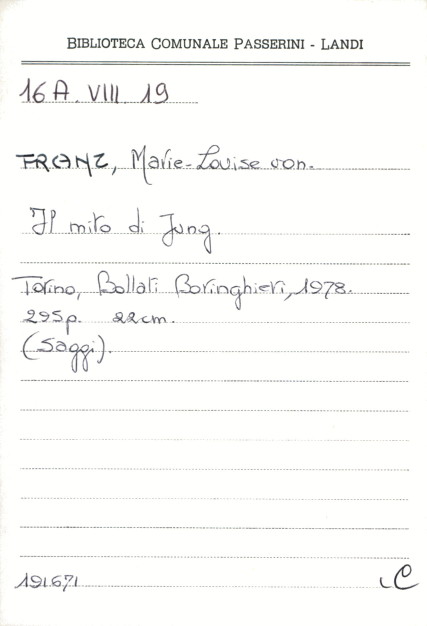 BIBLIOTECA COMUNALE PASSERINI - LANDI
16 A. VIII 19
FRANZ, Marie-Louise von.
Il mito di Jung.
Torino, Bollati Boringhieri, 1978.
295p. 22cm.
(Saggi).
191671 C